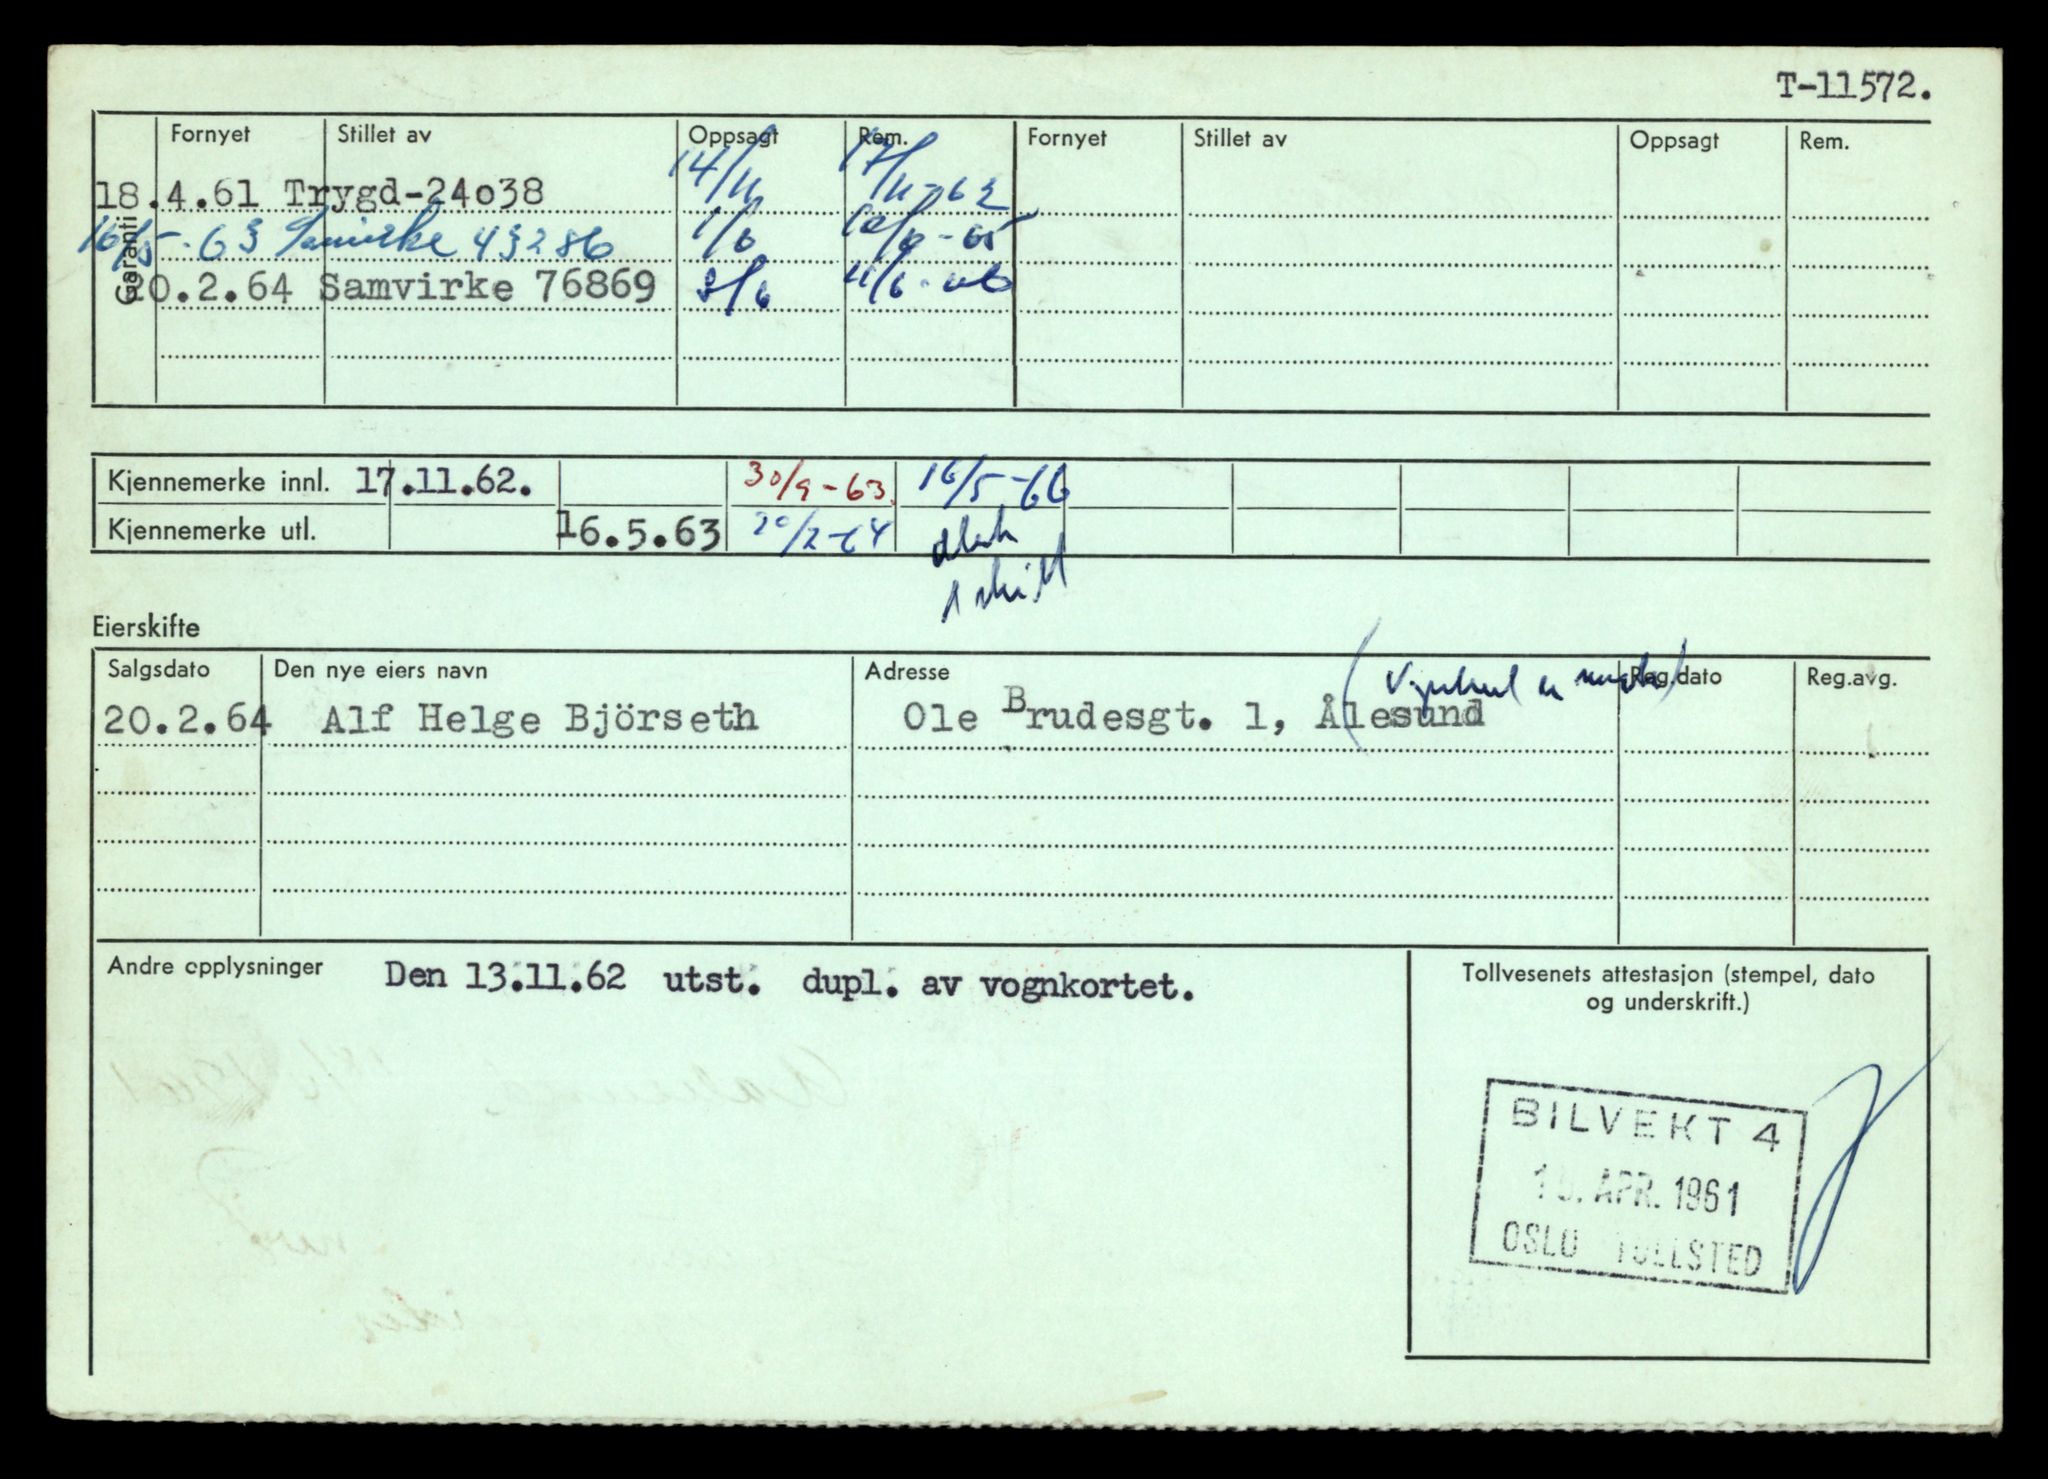 T-11572.
Garanti
Fornyet Stillet av Oppsagt Rem. Fornyet Stillet av Oppsagt Rem.
18.4.61 Trygd-24o38 14/11 17/11-62
16/5-63 Samvirke 43286 1/6
20.2.64 Samvirke 76869
Kjennemerke innl. 17.11.62. 30/9-63. 16/5-66
Kjennemerke utl. 16.5.63 20/2-64
Eierskifte
Salgsdato Den nye eiers navn Adresse Reg.dato Reg.avg.
20.2.64 Alf Helge Björseth Ole Brudesgt. 1, Ålesund
Andre opplysninger Den 13.11.62 utst. dupl. av vognkortet.
Tollvesenets attestasjon (stempel, dato
og underskrift.)
BILVEKT 4
APR. 1961
OSLO TOLLSTED